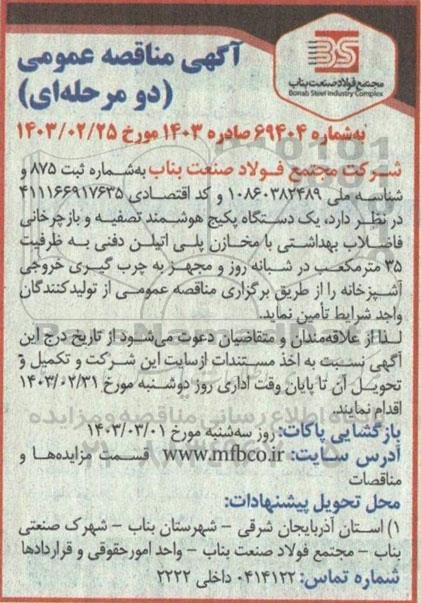 BSIC
مجتمع فولاد صنعت بناب
Bonab Steel Industry Complex
آگهی مناقصه عمومی
(دو مرحله‌ای)
به‌شماره ۶۹۴۰۴ صادره ۱۴۰۳ مورخ ۱۴۰۳/۰۲/۲۵
شرکت مجتمع فولاد صنعت بناب به‌شماره ثبت ۸۷۵ و
شناسه ملی ۱۰۸۶۰۳۸۲۴۸۹ و کد اقتصادی ۴۱۱۱۶۶۹۱۷۶۳۵
در نظر دارد، یک دستگاه پکیج هوشمند تصفیه و بازچرخانی
فاضلاب بهداشتی با مخازن پلی اتیلن دفنی به ظرفیت
۳۵ مترمکعب در شبانه روز و مجهز به چرب گیری خروجی
آشپزخانه را از طریق برگزاری مناقصه عمومی از تولیدکنندگان
واجد شرایط تأمین نماید.
لذا از علاقه‌مندان و متقاضیان دعوت می‌شود از تاریخ درج این
آگهی نسبت به اخذ مستندات از سایت این شرکت و تکمیل و
تحویل آن تا پایان وقت اداری روز دوشنبه مورخ ۱۴۰۳/۰۲/۳۱
اقدام نمایند.
بازگشایی پاکات: روز سه‌شنبه مورخ ۱۴۰۳/۰۳/۰۱
آدرس سایت: www.mfbco.ir قسمت مزایده‌ها و
مناقصات
محل تحویل پیشنهادات:
۱) استان آذربایجان شرقی - شهرستان بناب - شهرک صنعتی
بناب - مجتمع فولاد صنعت بناب - واحد امورحقوقی و قراردادها
شماره تماس: ۰۴۱۴۱۲۲ داخلی ۲۲۲۲